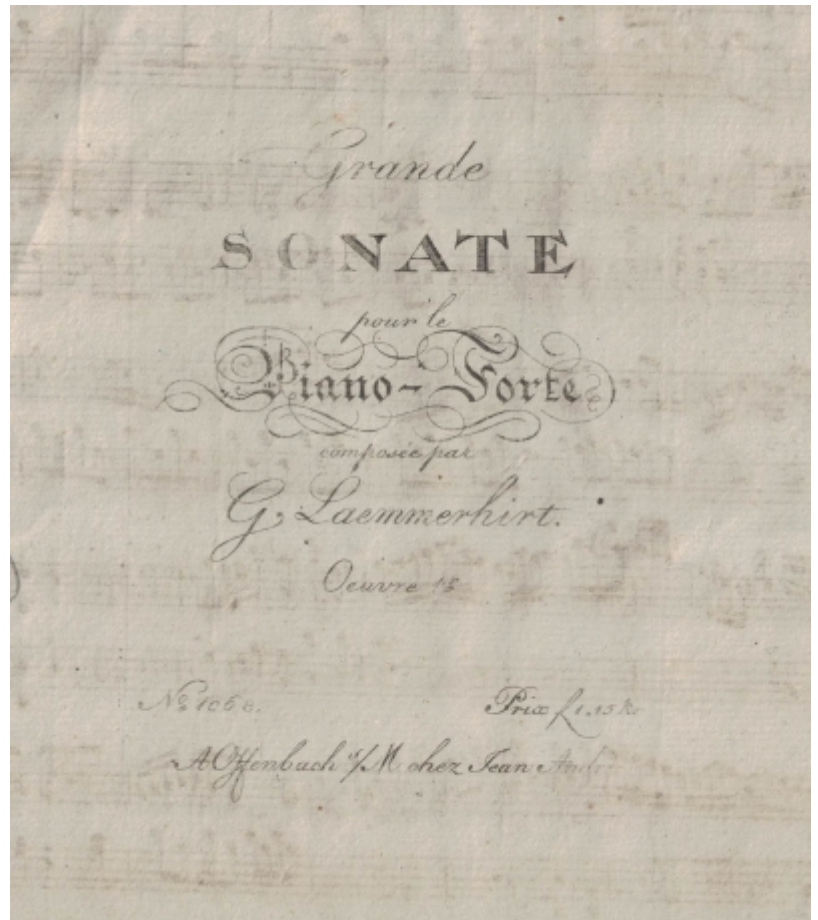 Grande
SONATE
pour le
Piano-Forte
composée par
G. Laemmerhirt.
Oeuvre 15
No. 1068. Prix f 1.15 Kr
A Offenbach s/M chez Jean André